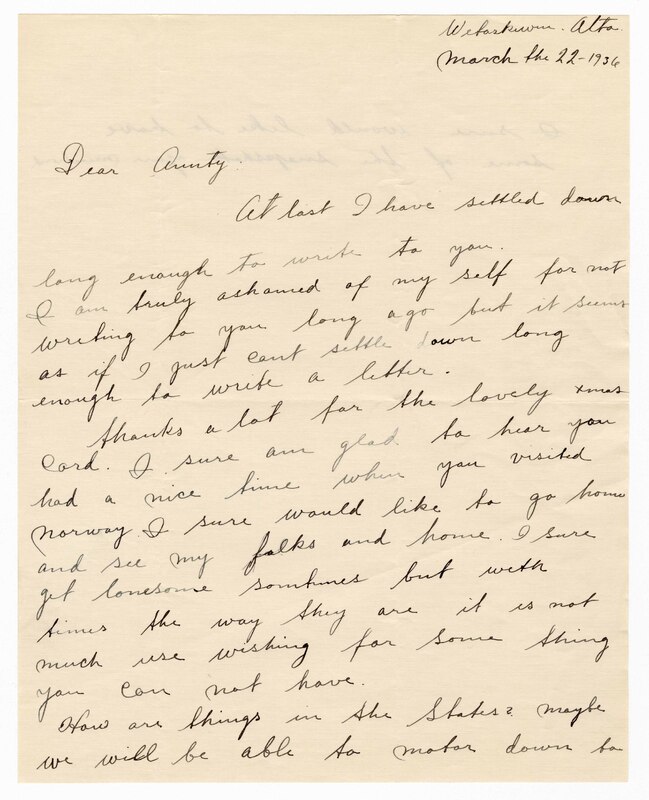 Wetaskiwin. Alta.
March the 22-1936
Dear Aunty.
At last I have settled down
long enough to write to you.
I am truly ashamed of my self for not
writing to you long ago but it seems
as if I just cant settle down long
enough to write a letter.
thanks a lot for the lovely xmas
Card. I sure am glad to hear you
had a nice time when you visited
norway. I sure would like to go home
and see my folks and home. I sure
get lonesome somtimes but with
times the way they are it is not
much use wishing for some thing
you can not have.
How are things in the States? maybe
we will be able to motor down to